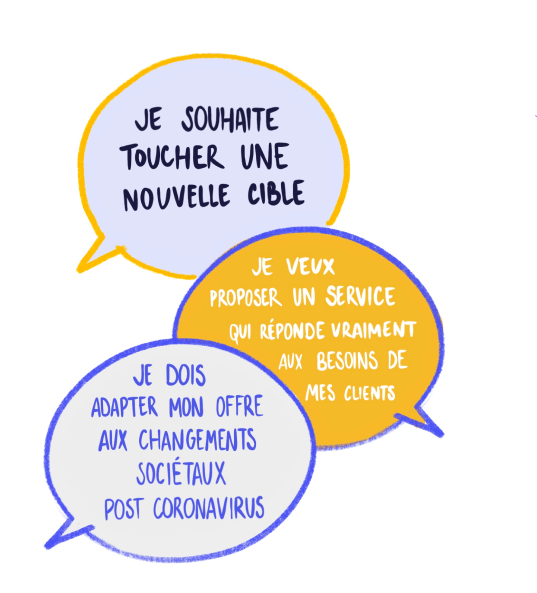 JE SOUHAITE
TOUCHER UNE
NOUVELLE CIBLE
JE VEUX
PROPOSER UN SERVICE
QUI RÉPONDE VRAIMENT
AUX BESOINS DE
MES CLIENTS
JE DOIS
ADAPTER MON OFFRE
AUX CHANGEMENTS
SOCIÉTAUX
POST CORONAVIRUS